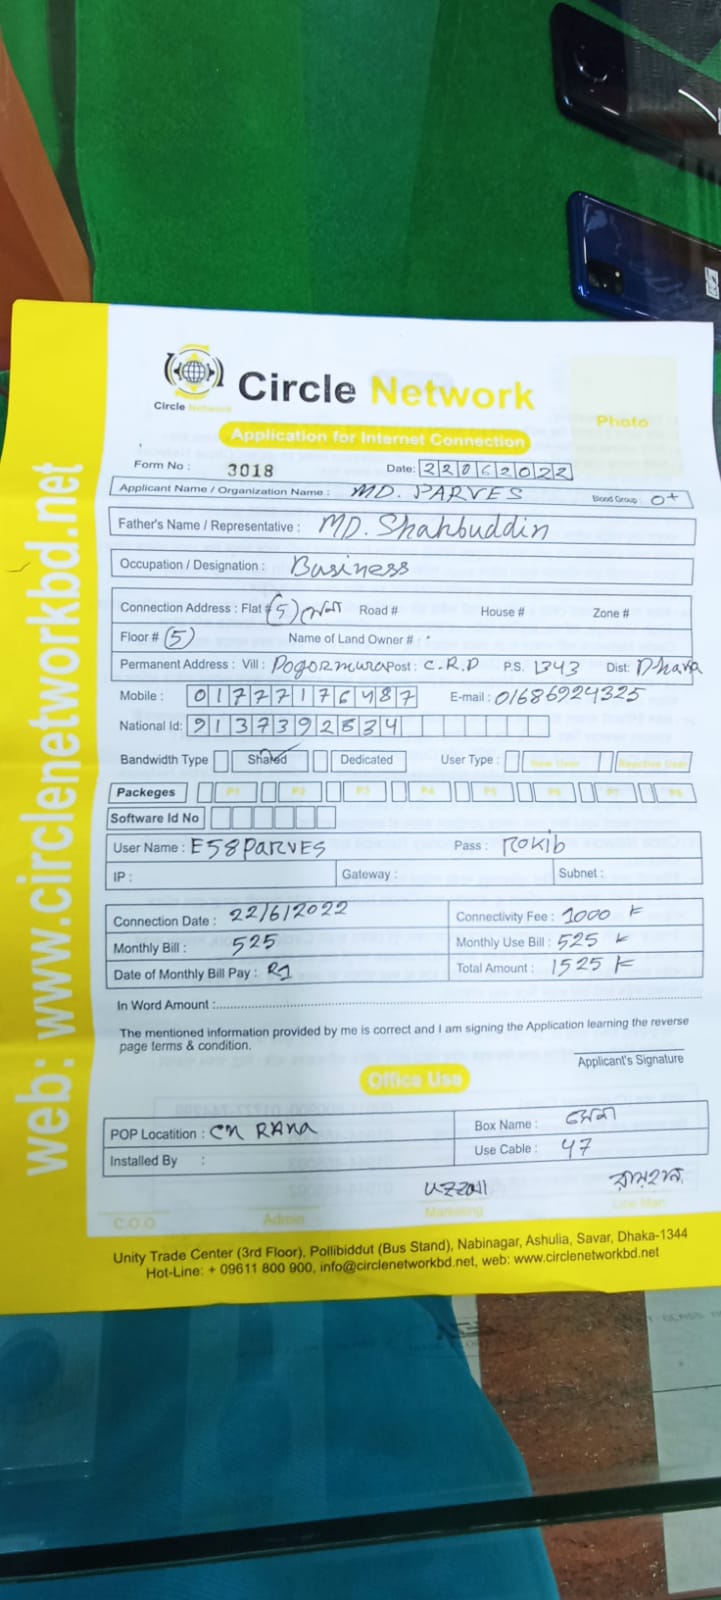 web: www.circlenetworkbd.net
Circle Network
Circle Network
Photo
Application for Internet Connection
Form No : 3018 Date: 22062022
Applicant Name / Organization Name : MD. PARVES Blood Group: O+
Father's Name / Representative : MD. Shahbuddin
Occupation / Designation : Business
Connection Address : Flat # (5) Road # House # Zone #
Floor # (5) Name of Land Owner #
Permanent Address : Vill : Pogormura Post : C.R.D P.S. 1343 Dist: Dhaka
Mobile : 01777176487 E-mail : 01686924325
National Id: 9137392834
Bandwidth Type Shared Dedicated User Type : New User Reactive User
Packeges P1 P2 P3 P4 P5 P6 P7 P8
Software Id No
User Name : E58PARVES Pass : ROKIb
IP : Gateway : Subnet :
Connection Date : 22/6/2022 Connectivity Fee : 1000
Monthly Bill : 525 Monthly Use Bill : 525
Date of Monthly Bill Pay : Total Amount : 1525
In Word Amount :
The mentioned information provided by me is correct and I am signing the Application learning the reverse
page terms & condition.
Applicant's Signature
Office Use
POP Locatition : CN RANA Box Name :
Installed By : Use Cable : 47
C.O.O Admin Marketing Line Man
Unity Trade Center (3rd Floor), Pollibiddut (Bus Stand), Nabinagar, Ashulia, Savar, Dhaka-1344
Hot-Line: + 09611 800 900, info@circlenetworkbd.net, web: www.circlenetworkbd.net